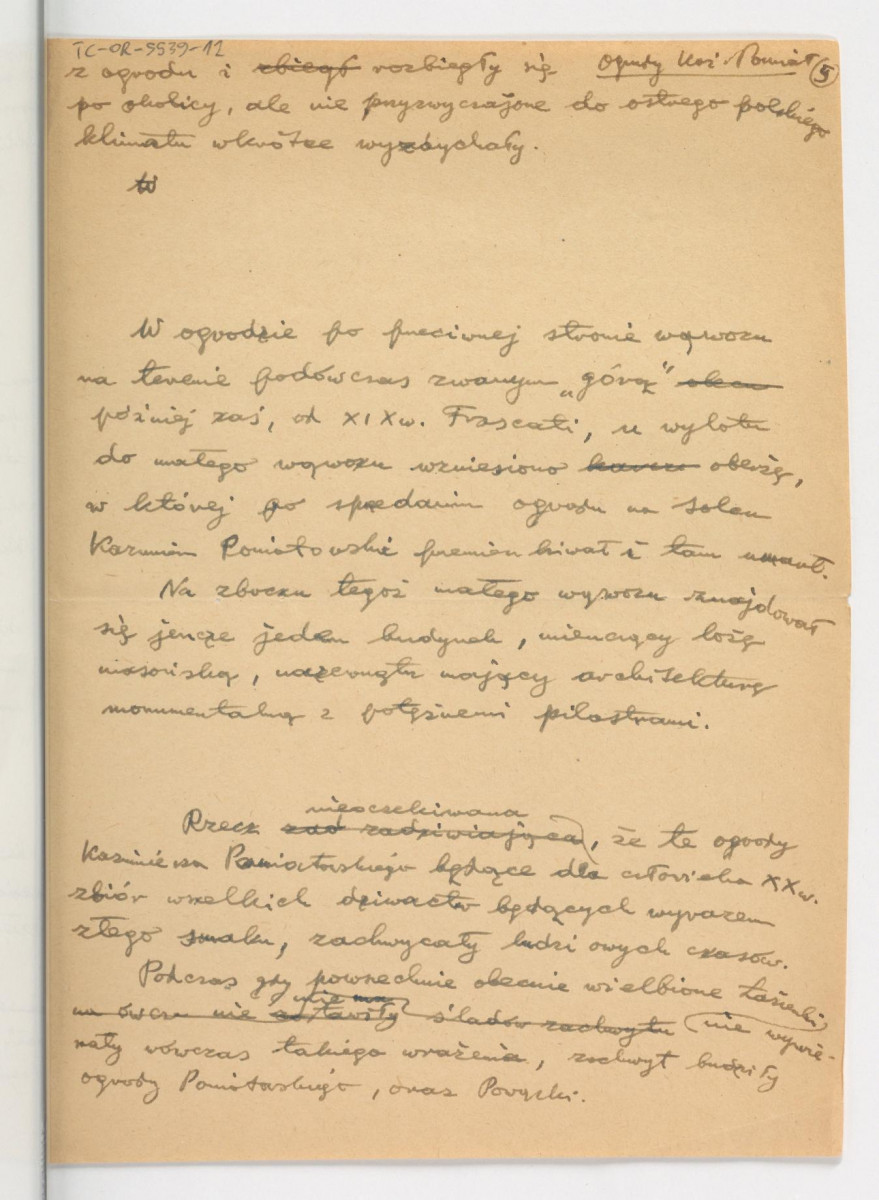 TC-OR-5539-12
Ogrody Kaz. Poniat. 5
z ogrodu i zbiegł rozbiegły się
po okolicy, ale nie przyzwyczajone do ostrego polskiego
klimatu wkrótce wyzdychały.
W
W ogrodzie po przeciwnej stronie wąwozu
na terenie podówczas zwanym „górą"
później zaś, od XIX w. Frascati, u wylotu
do małego wąwozu wzniesiono oberżę,
w której po sprzedaniu ogrodu na Solcu
Kazimierz Poniatowski przemieszkiwał i tam umarł.
Na zboczu tegoż małego wąwozu znajdował
się jeszcze jeden budynek, mieszczący lożę
masońską, nazewnątrz mający architekturę
monumentalną z potężnemi pilastrami.
nieoczekiwana
Rzecz zadziwiająca, że te ogrody
Kazimierza Poniatowskiego będące dla człowieka XX w.
zbiór wszelkich dziwactw będących wyrazem
złego smaku, zachwycały ludzi owych czasów.
Podczas gdy powszechnie obecnie wielbione Łazienki
nie ma
na ówcz. nie zostawiły śladów zachwytu nie wywie-
rały wówczas takiego wrażenia, zachwyt budziły
ogrody Poniatowskiego, oraz Powązki.